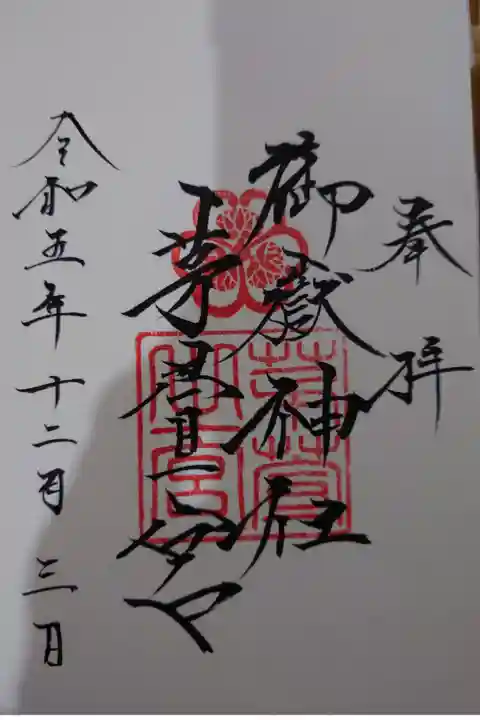 奉拝
御嶽神社
茅萱宮
令和五年十二月三日